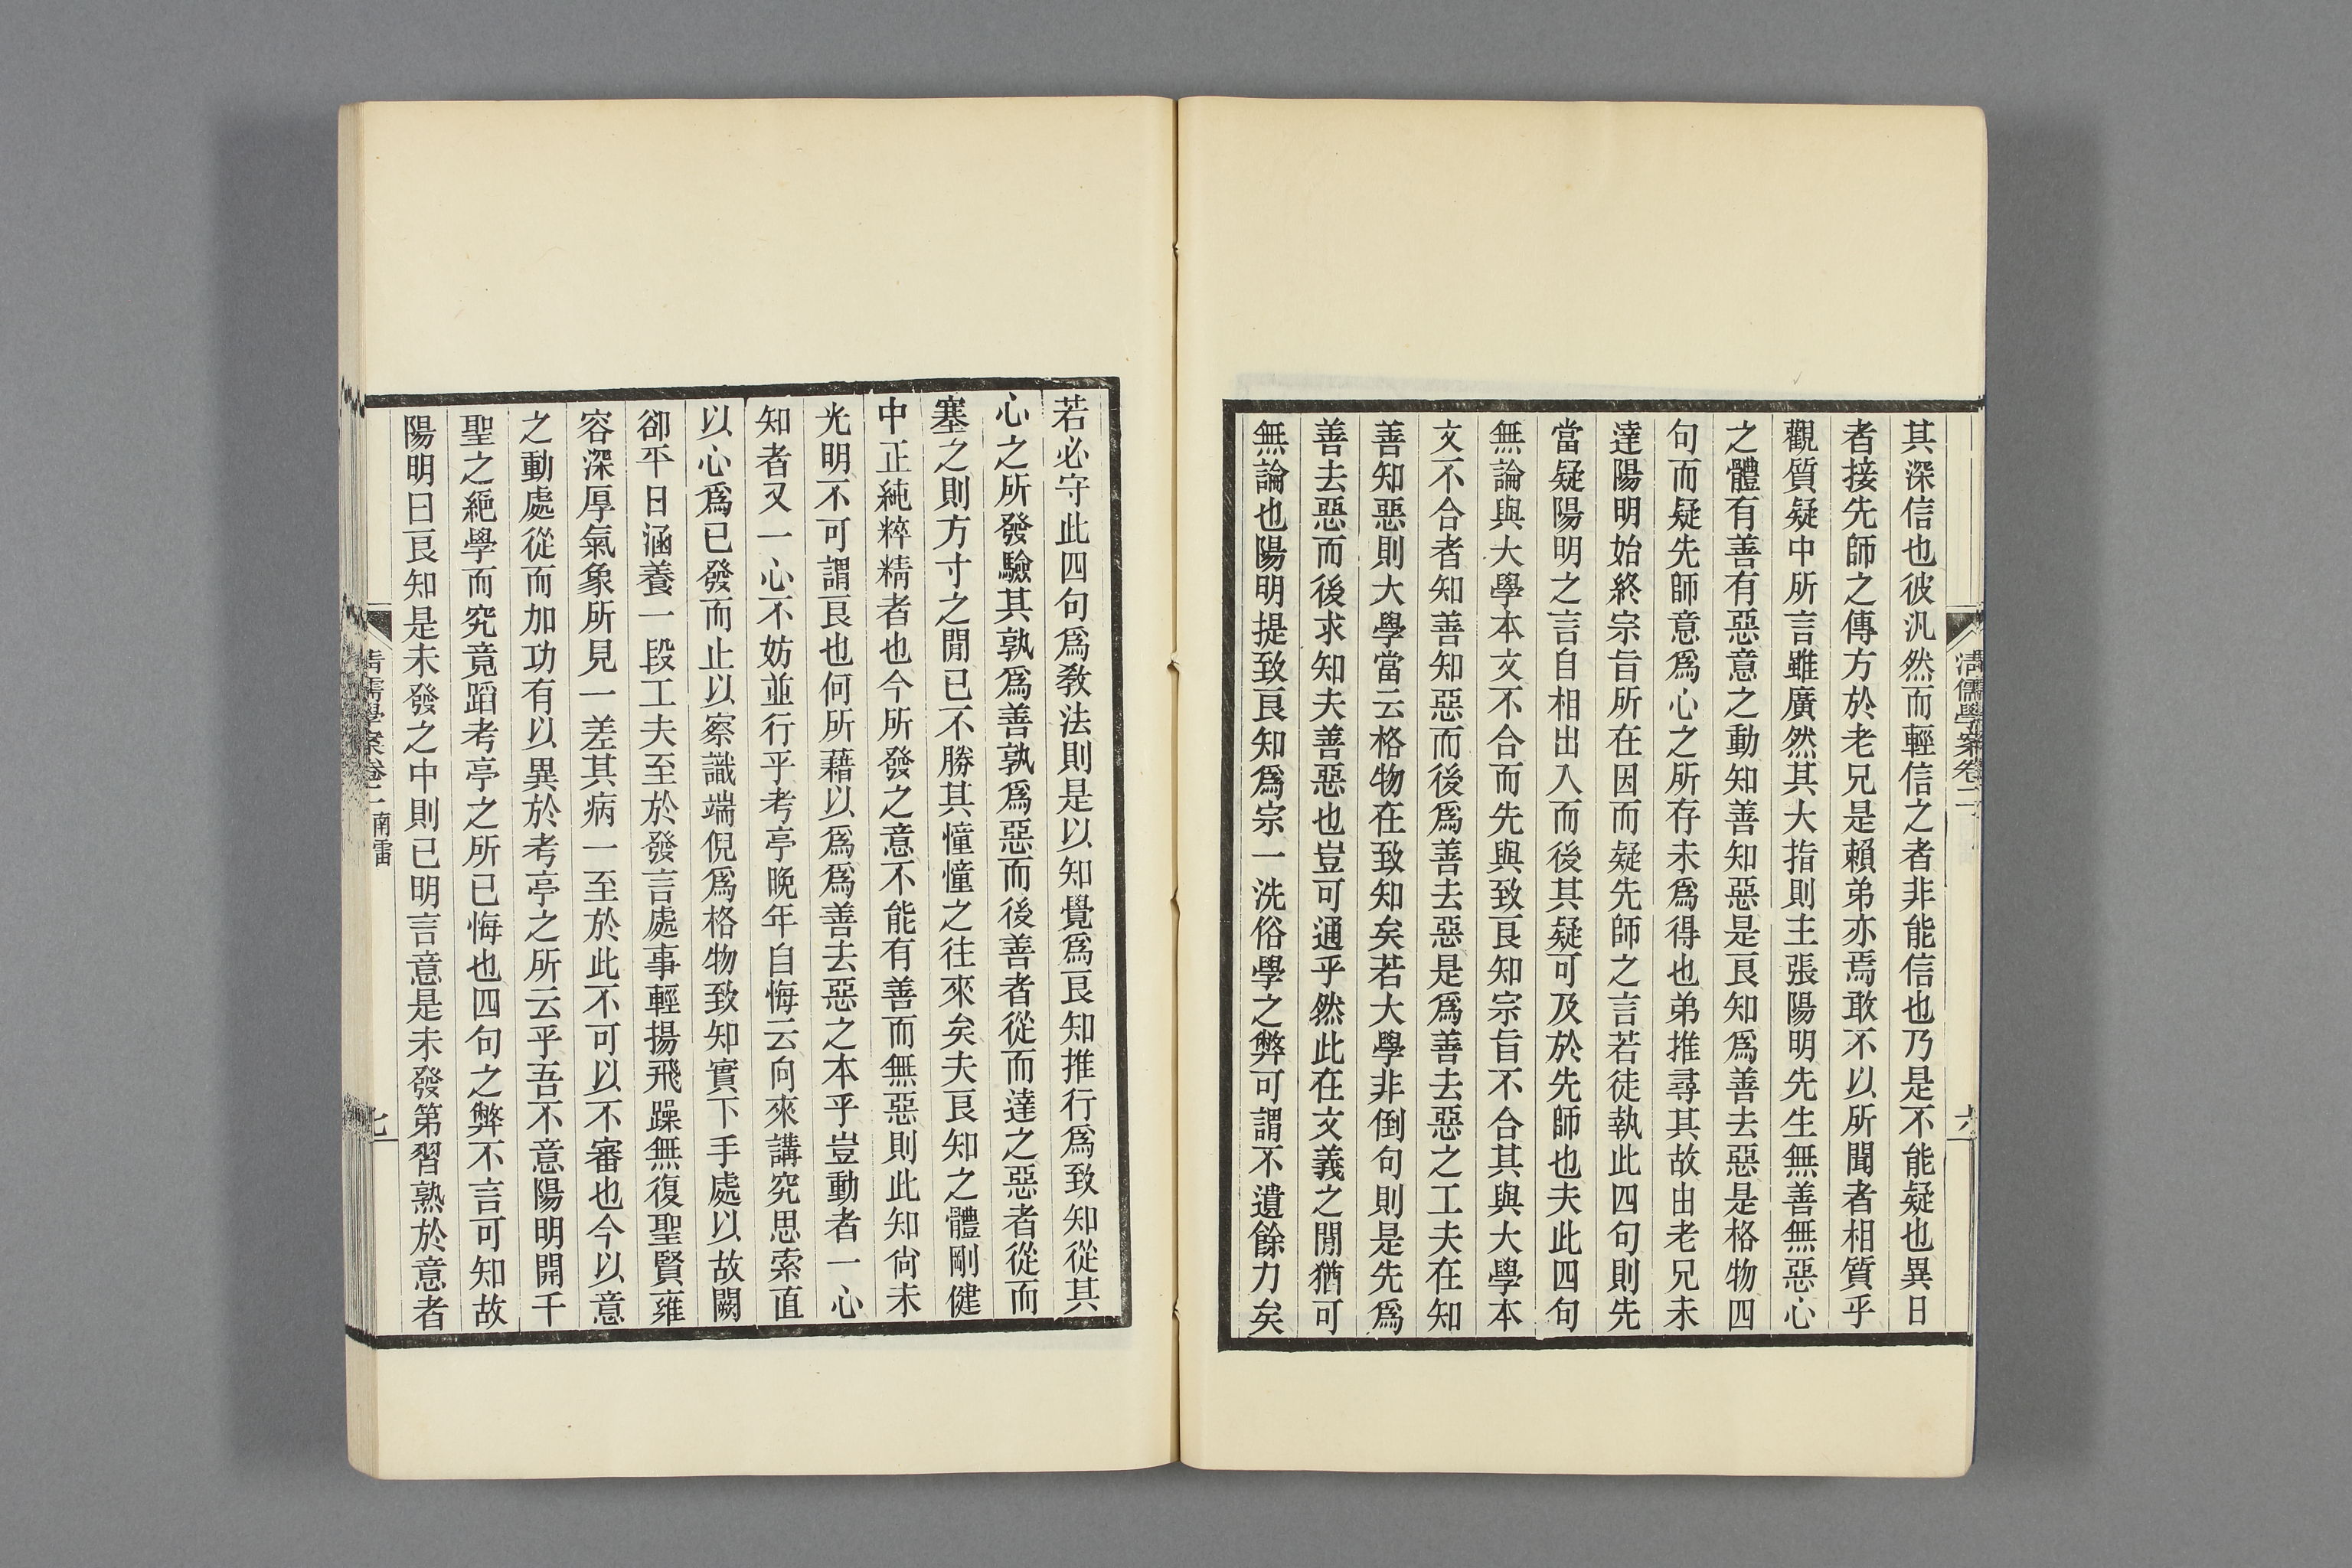 清儒學案卷二
六
其深信也彼汎然而輕信之者非能信也乃是不能疑也異日
者接先師之傳方於老兄是賴弟亦焉敢不以所聞者相質乎
觀質疑中所言雖廣然其大指則主張陽明先生無善無惡心
之體有善有惡意之動知善知惡是良知爲善去惡是格物四
句而疑先師意爲心之所存未爲得也弟推尋其故由老兄未
達陽明始終宗旨所在因而疑先師之言若徒執此四句則先
當疑陽明之言自相出入而後其疑可及於先師也夫此四句
無論與大學本文不合而先與致良知宗旨不合其與大學本
文不合者知善知惡而後爲善去惡是爲善去惡之工夫在知
善知惡則大學當云格物在致知矣若大學非倒句則是先爲
善去惡而後求知夫善惡也豈可通乎然此在文義之閒猶可
無論也陽明提致良知爲宗一洗俗學之弊可謂不遺餘力矣
若必守此四句爲教法則是以知覺爲良知推行爲致知從其
心之所發驗其孰爲善孰爲惡而後善者從而達之惡者從而
塞之則方寸之閒已不勝其憧憧之往來矣夫良知之體剛健
中正純粹精者也今所發之意不能有善而無惡則此知尙未
光明不可謂良也何所藉以爲爲善去惡之本乎豈動者一心
知者又一心不妨並行乎考亭晚年自悔云向來講究思索直
以心爲已發而止以察識端倪爲格物致知實下手處以故闕
卻平日涵養一段工夫至於發言處事輕揚飛躁無復聖賢雍
容深厚氣象所見一差其病一至於此不可以不審也今以意
之動處從而加功有以異於考亭之所云乎吾不意陽明開千
聖之絕學而究竟蹈考亭之所已悔也四句之弊不言可知故
陽明曰良知是未發之中則已明言意是未發第習熟於意者
清儒學案卷二 南雷
七